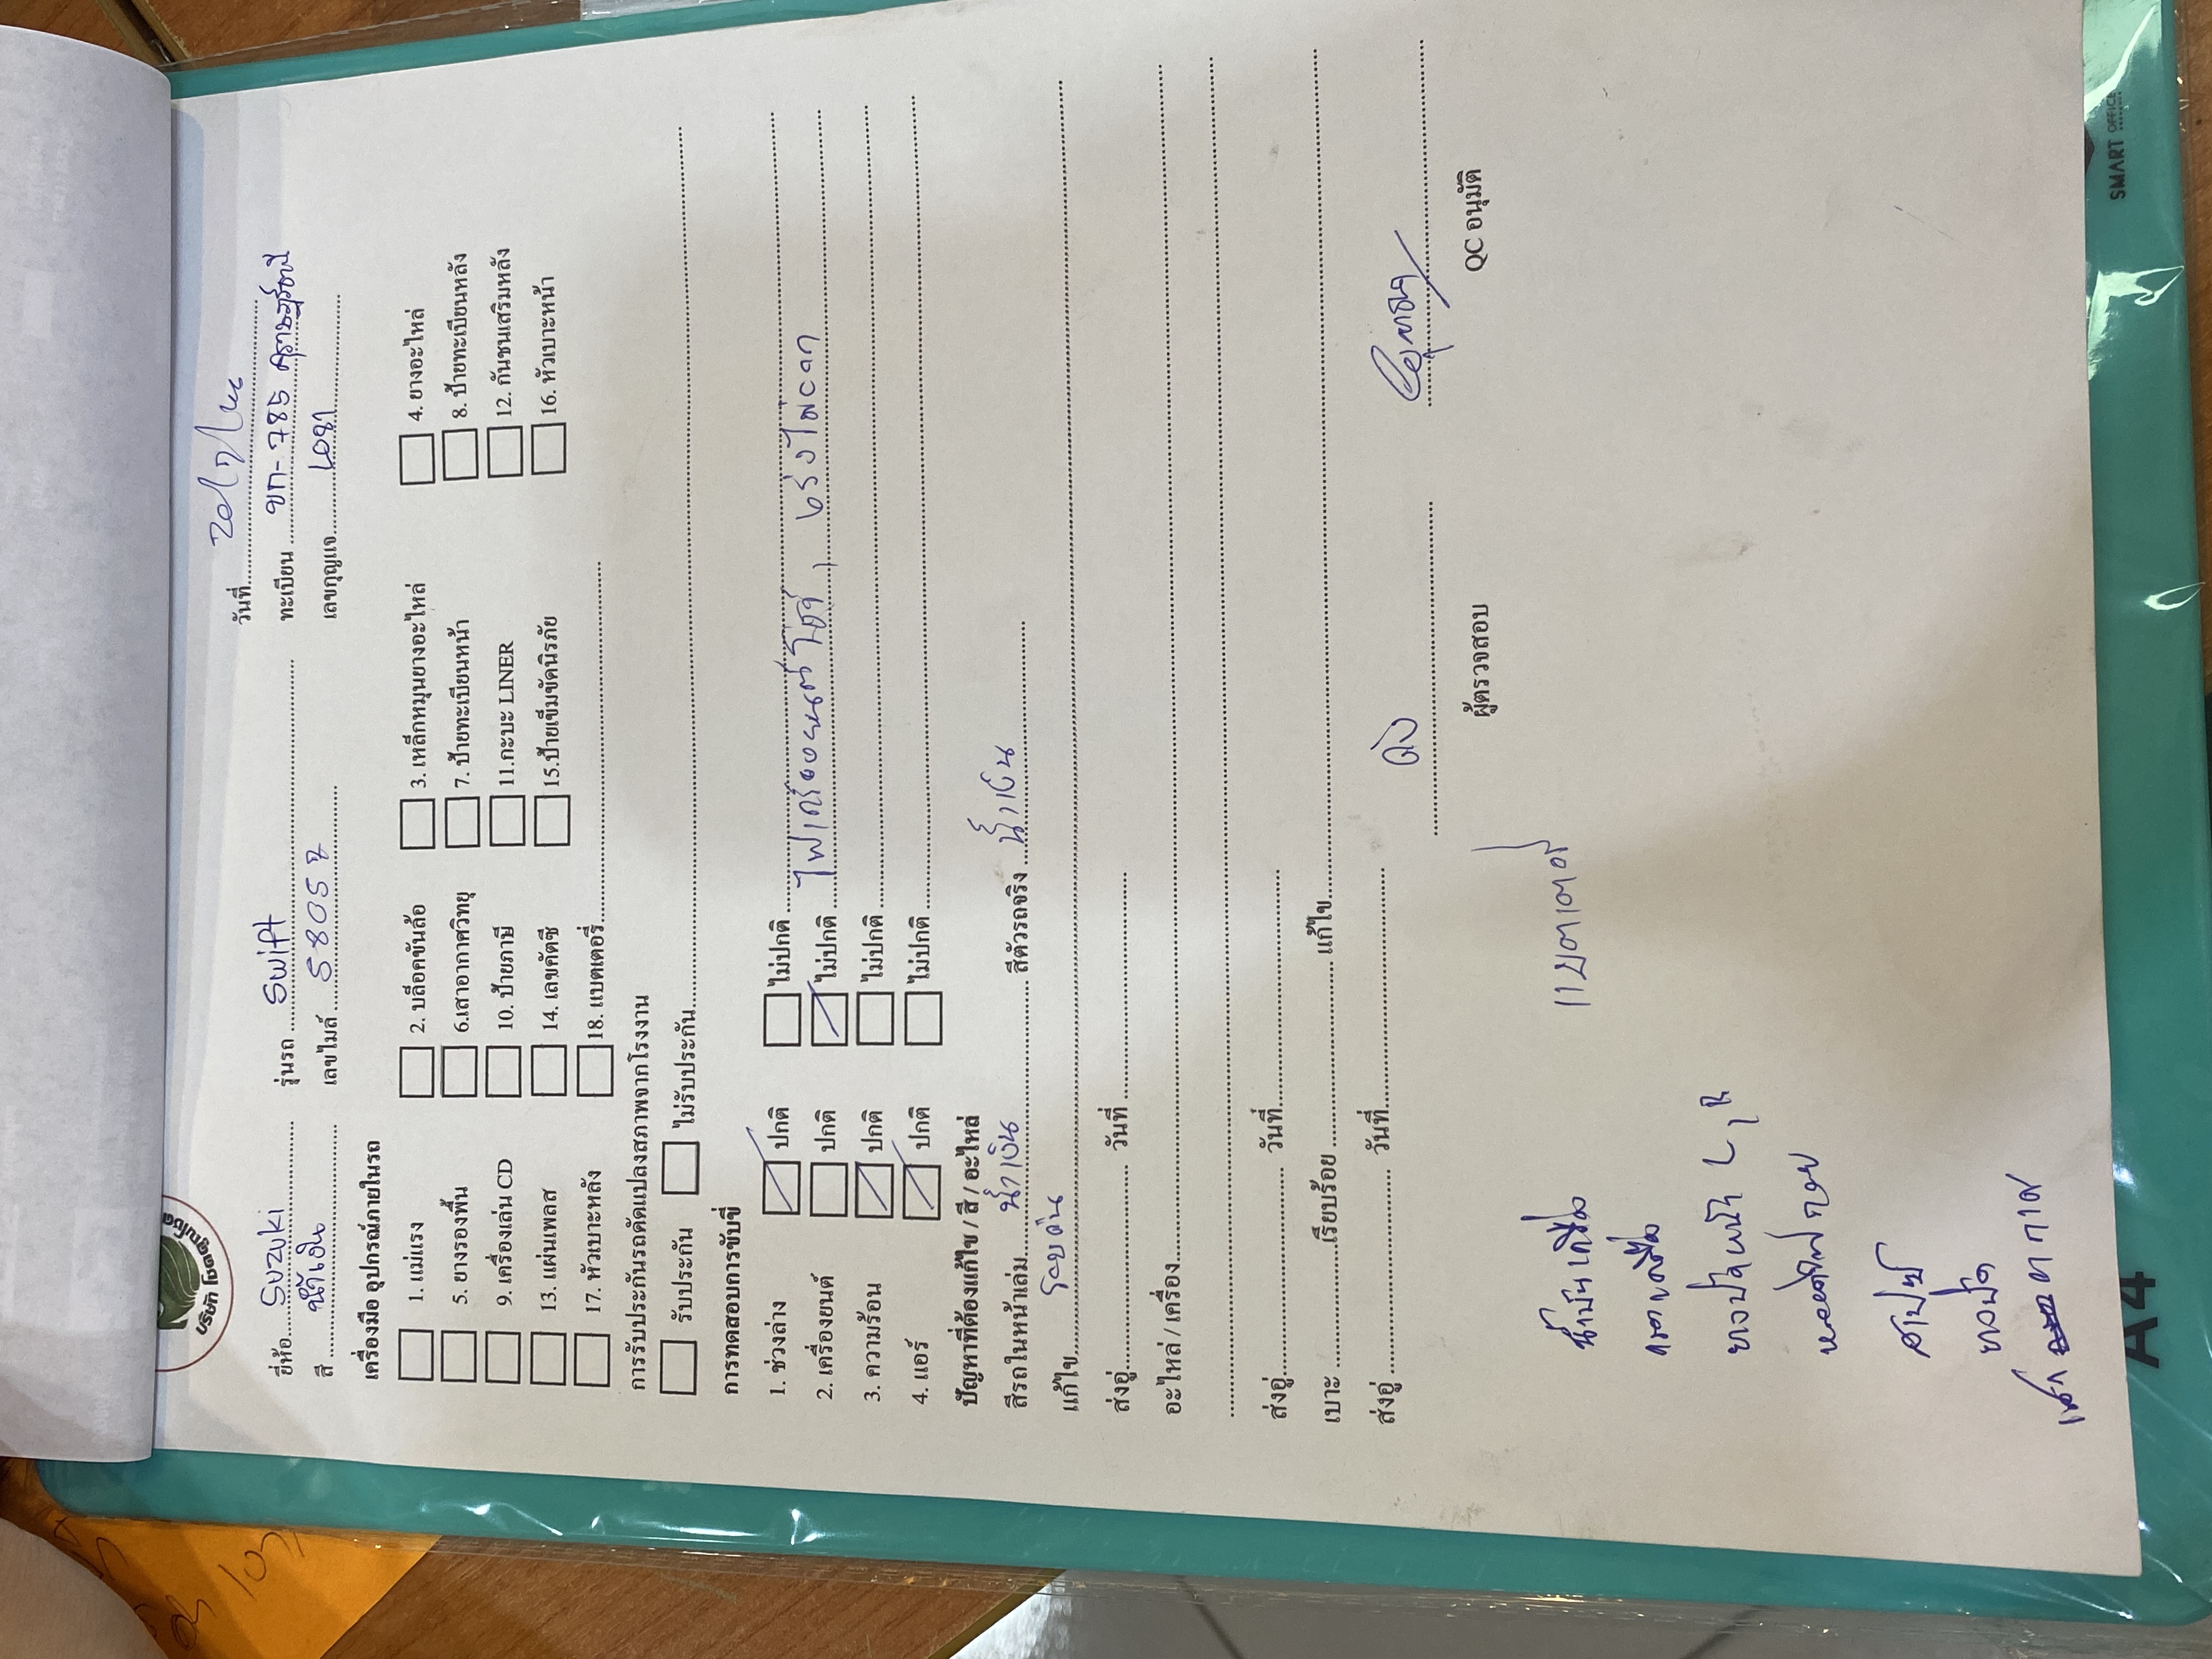 บริษัท โชคคูณโชค
วันที่
ยี่ห้อ Suzuki รุ่นรถ Swift ทะเบียน ขก-785 สุราษฎร์ธานี
สี น้ำเงิน เลขไมล์ เลขกุญแจ
เครื่องมือ อุปกรณ์ภายในรถ
1. แม่แรง 2. บล็อคขันล้อ 3. เหล็กหมุนยางอะไหล่ 4. ยางอะไหล่
5. ยางรองพื้น 6.เสาอากาศวิทยุ 7. ป้ายทะเบียนหน้า 8. ป้ายทะเบียนหลัง
9. เครื่องเล่น CD 10. ป้ายภาษี 11.กะบะ LINER 12. กันชนเสริมหลัง
13. แผ่นเพลส 14. เลขคัตซี 15.ป้ายเข็มขัดนิรภัย 16. หัวเบาะหน้า
17. หัวเบาะหลัง 18. แบตเตอรี่
การรับประกันรถดัดแปลงสภาพจากโรงงาน
รับประกัน ไม่รับประกัน
การทดสอบการขับขี่
1. ช่วงล่าง ปกติ ไม่ปกติ
2. เครื่องยนต์ ปกติ ไม่ปกติ ไฟเครื่องยนต์โชว์
3. ความร้อน ปกติ ไม่ปกติ
4. แอร์ ปกติ ไม่ปกติ
ปัญหาที่ต้องแก้ไข / สี / อะไหล่
สีรถในหน้าเล่ม น้ำเงิน สีตัวรถจริง น้ำเงิน
แก้ไข
ส่งอู่ วันที่
อะไหล่ / เครื่อง
ส่งอู่ วันที่
เบาะ เรียบร้อย แก้ไข
ส่งอู่ วันที่
ผู้ตรวจสอบ QC อนุมัติ
น้ำมันเครื่อง แบตเตอรี่
กรองเครื่อง
SMART OFFICE
A4